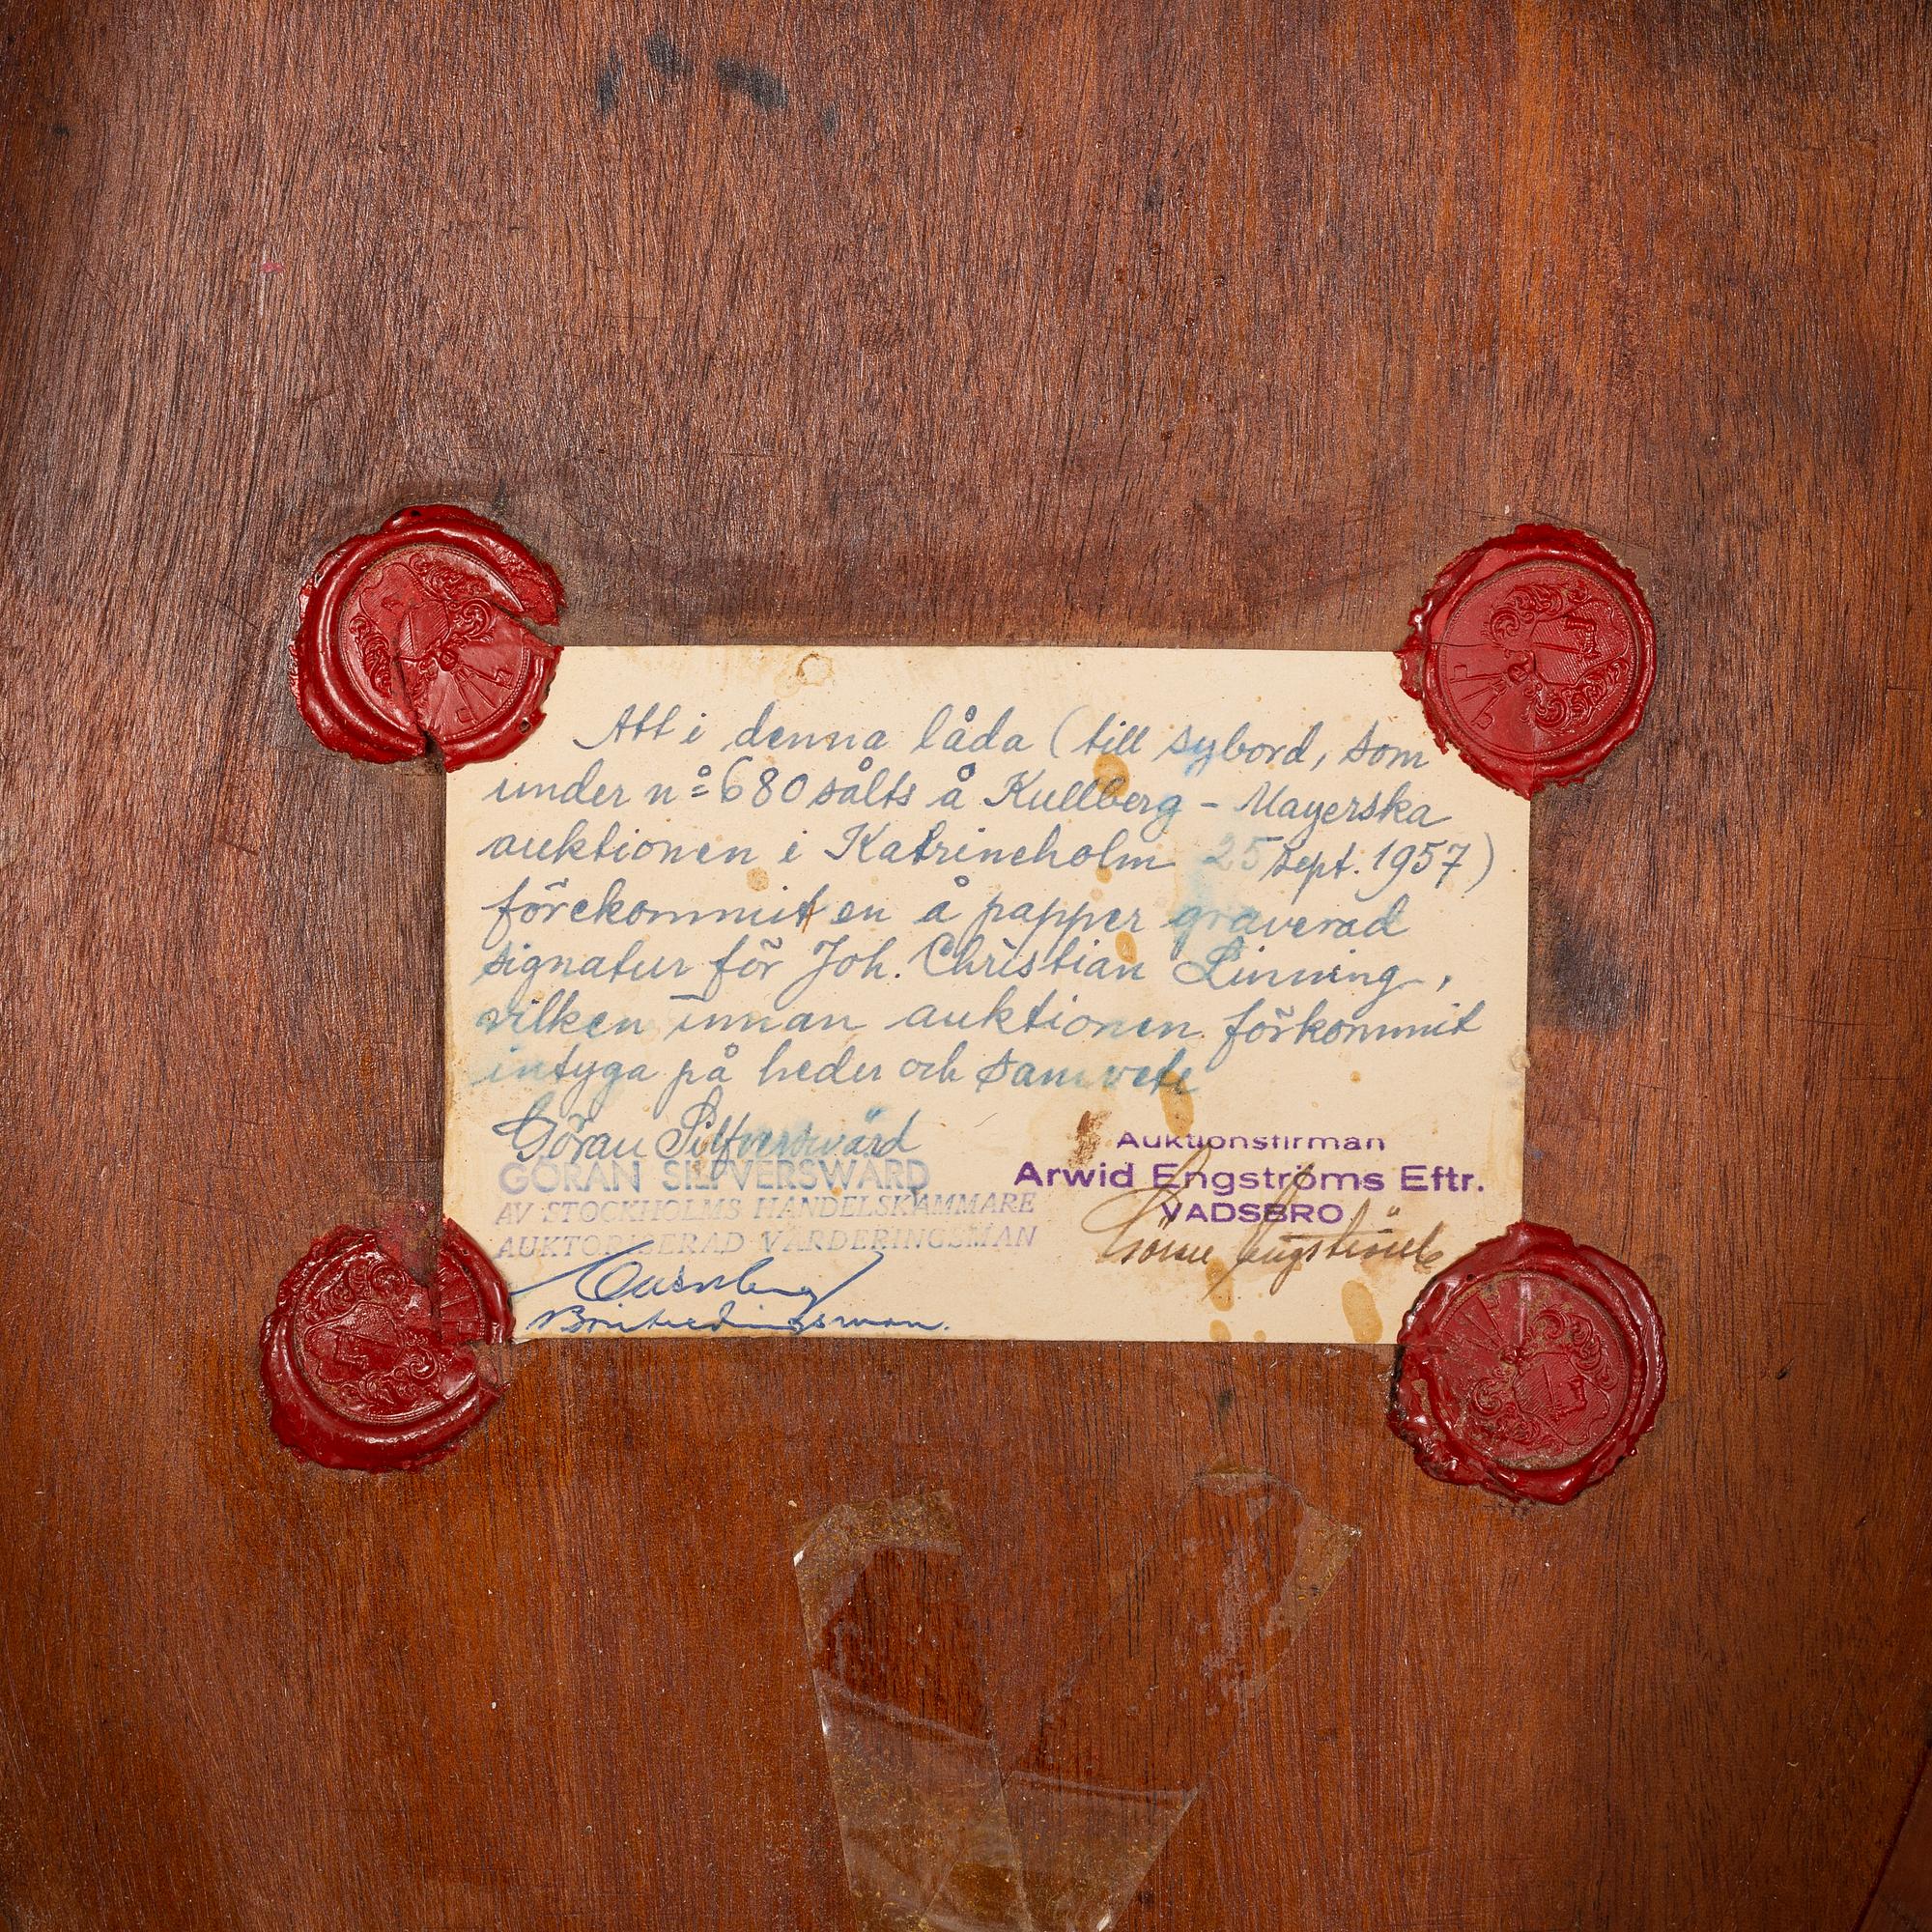 Att i denna låda (till sybord, som
under nº 680 sålts å Kullberg - Mayerska
auktionen i Katrineholm 25 sept. 1957)
förekommit en å papper graverad
signatur för Joh. Christian Linning,
vilken innan auktionen förkommit
intyga på heder och samvete
Göran Silfverswärd
GÖRAN SILFVERSWÄRD
AV STOCKHOLMS HANDELSKAMMARE
AUKTORISERAD VÄRDERINGSMAN
Auktionsfirman
Arwid Engströms Eftr.
VADSBRO
Engström